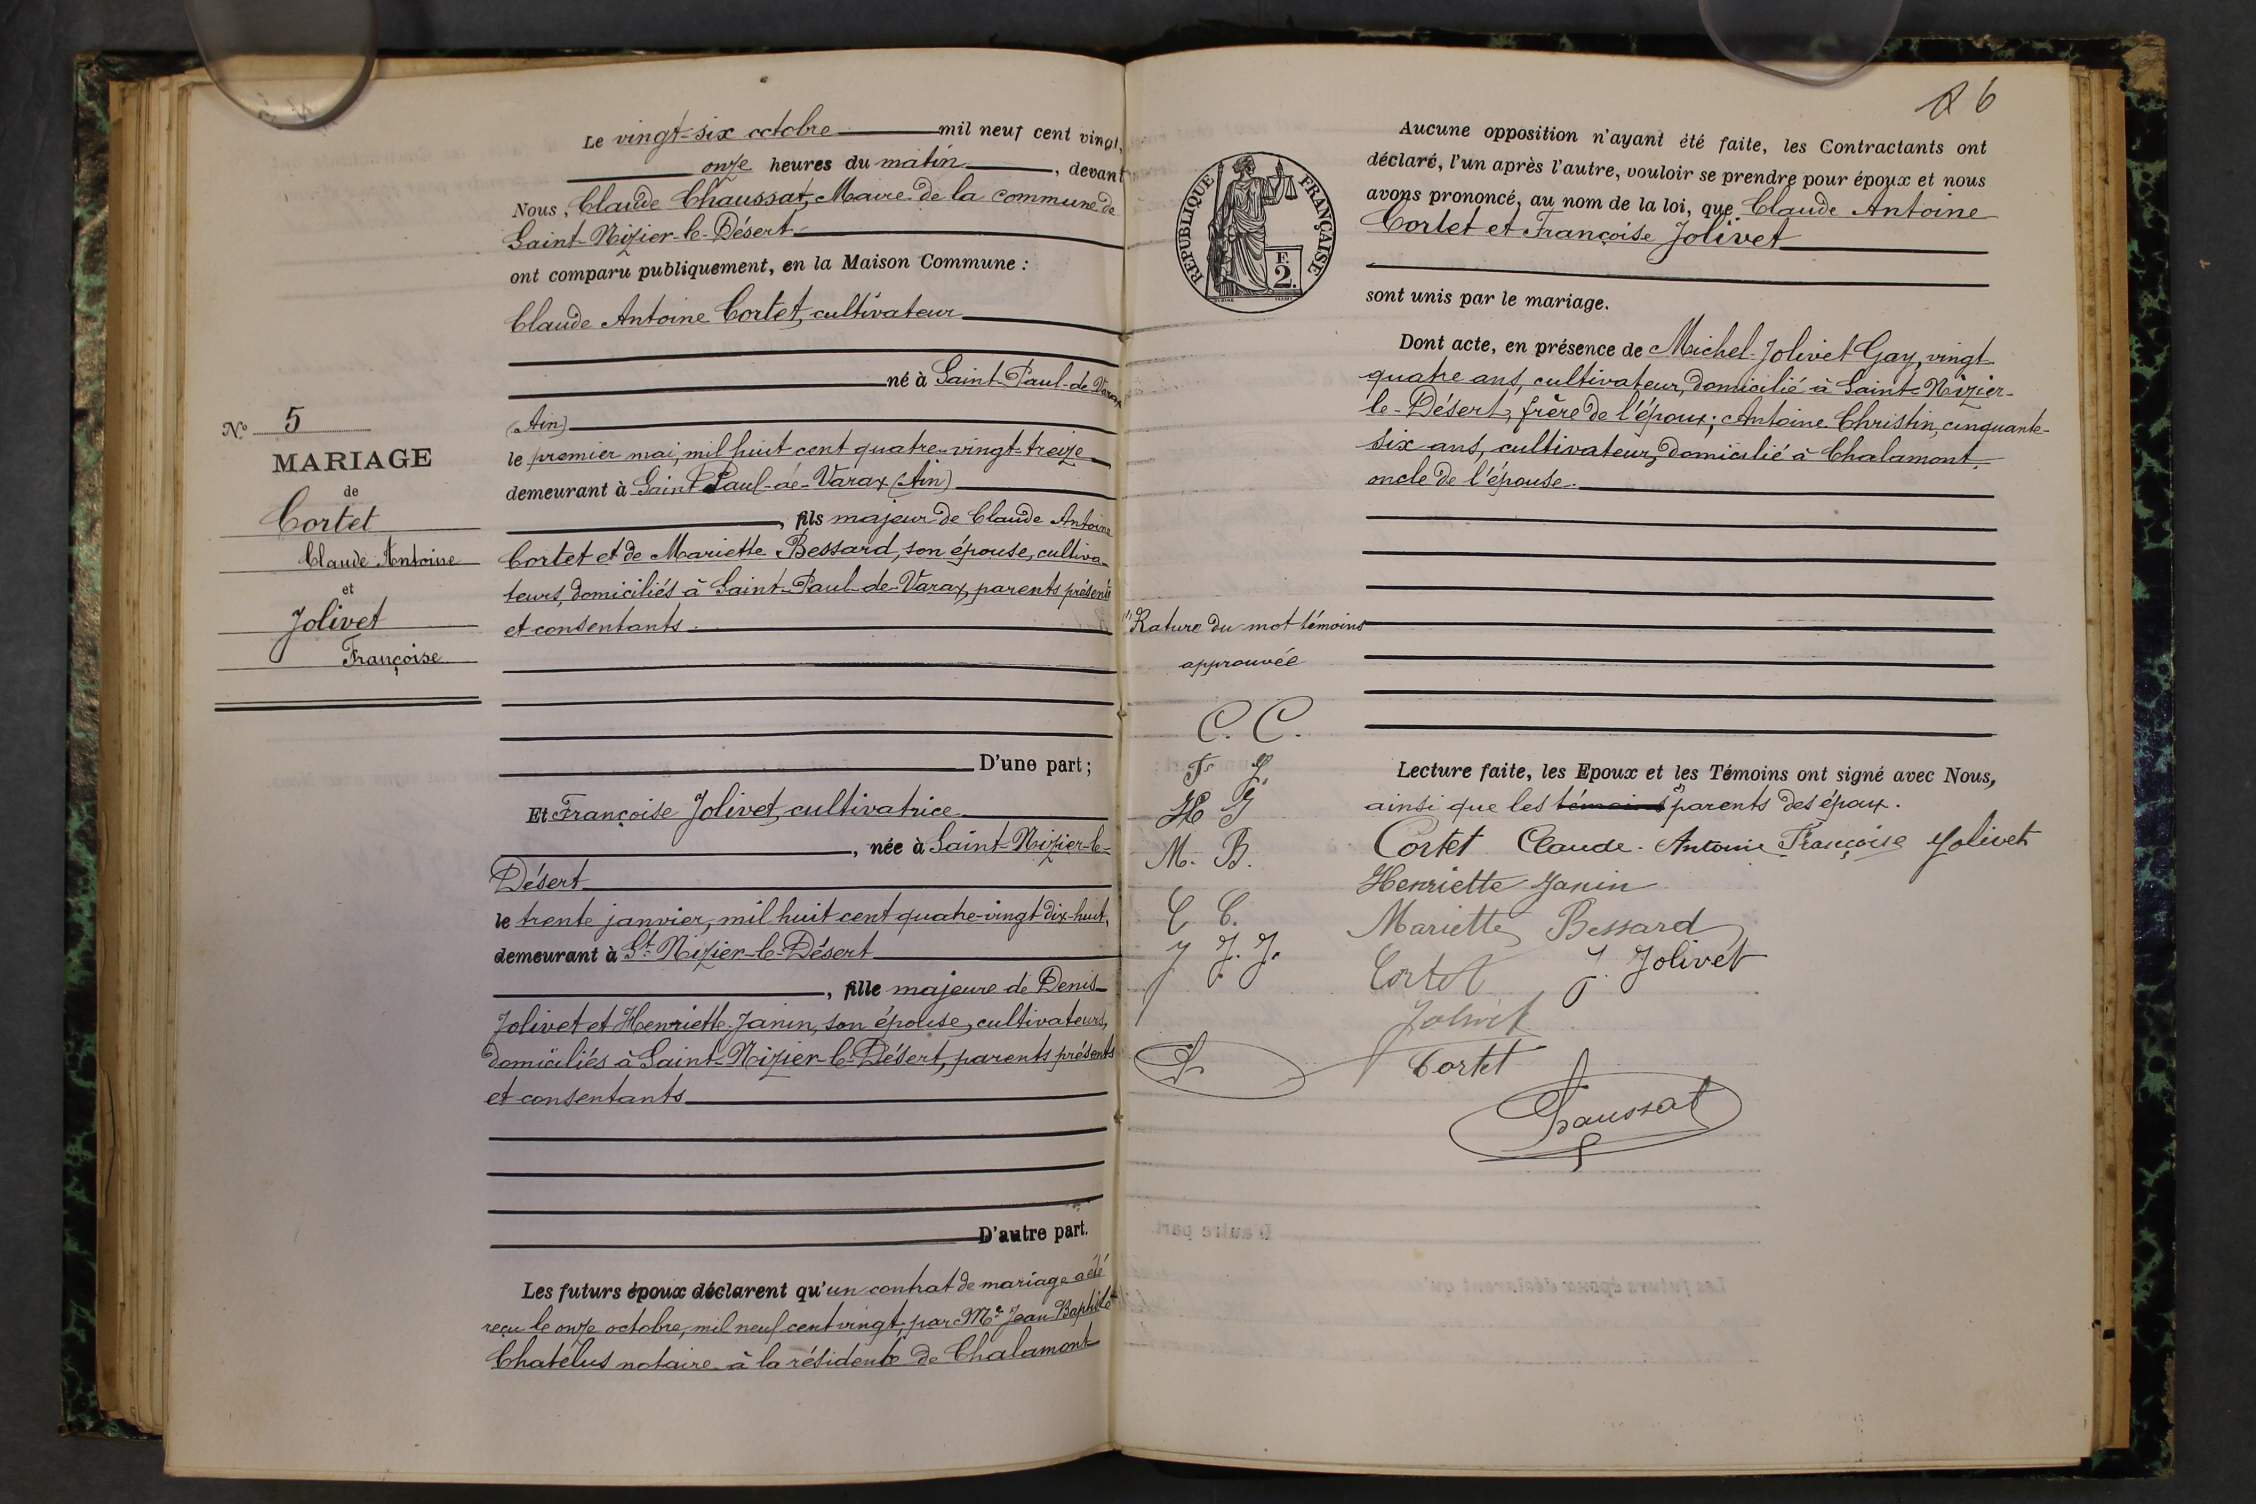 Le vingt-six octobre mil neuf cent vingt,
onze heures du matin, devant
Nous, Claude Chaussat, Maire de la commune de
Saint-Nizier-le-Désert
ont comparu publiquement, en la Maison Commune :
Claude Antoine Cortet, cultivateur
né à Saint-Paul-de-Varax
(Ain)
le premier mai, mil huit cent quatre-vingt-treize
demeurant à Saint Paul-de-Varax (Ain)
, fils majeur de Claude Antoine
Cortet et de Mariette Bessard, son épouse, cultiva-
teurs, domiciliés à Saint-Paul-de-Varax, parents présents
et consentants
D'une part ;
Et Françoise Jolivet, cultivatrice
, née à Saint-Nizier-le-
Désert
le trente janvier, mil huit cent quatre-vingt dix-huit,
demeurant à St Nizier-le-Désert
, fille majeure de Denis
Jolivet et Henriette Janin, son épouse, cultivateurs,
domiciliés à Saint-Nizier-le-Désert, parents présents
et consentants
D'autre part.
Les futurs époux déclarent qu'un contrat de mariage a été
reçu le onze octobre, mil neuf cent vingt, par Me Jean-Baptiste
Chatélus notaire à la résidence de Chalamont
N° 5
MARIAGE
de
Cortet
Claude Antoine
et
Jolivet
Françoise
6
REPUBLIQUE FRANÇAISE
F.
2.
Aucune opposition n'ayant été faite, les Contractants ont
déclaré, l'un après l'autre, vouloir se prendre pour époux et nous
avons prononcé, au nom de la loi, que Claude Antoine
Cortet et Françoise Jolivet
sont unis par le mariage.
Dont acte, en présence de Michel Jolivet Gay, vingt
quatre ans, cultivateur, domicilié à Saint-Nizier-
le-Désert, frère de l'époux ; Antoine Christin, cinquante-
six ans, cultivateur, domicilié à Chalamont,
oncle de l'épouse.
Lecture faite, les Epoux et les Témoins ont signé avec Nous,
ainsi que les témoins parents des époux.
(1) Rature du mot témoins
approuvée
C. C.
F J.
H J
M. B.
C C.
J J. J.
Cortet Claude-Antoine Françoise Jolivet
Henriette Janin
Mariette Bessard
Cortet J. Jolivet
Jolivet
Cortet
Chaussat